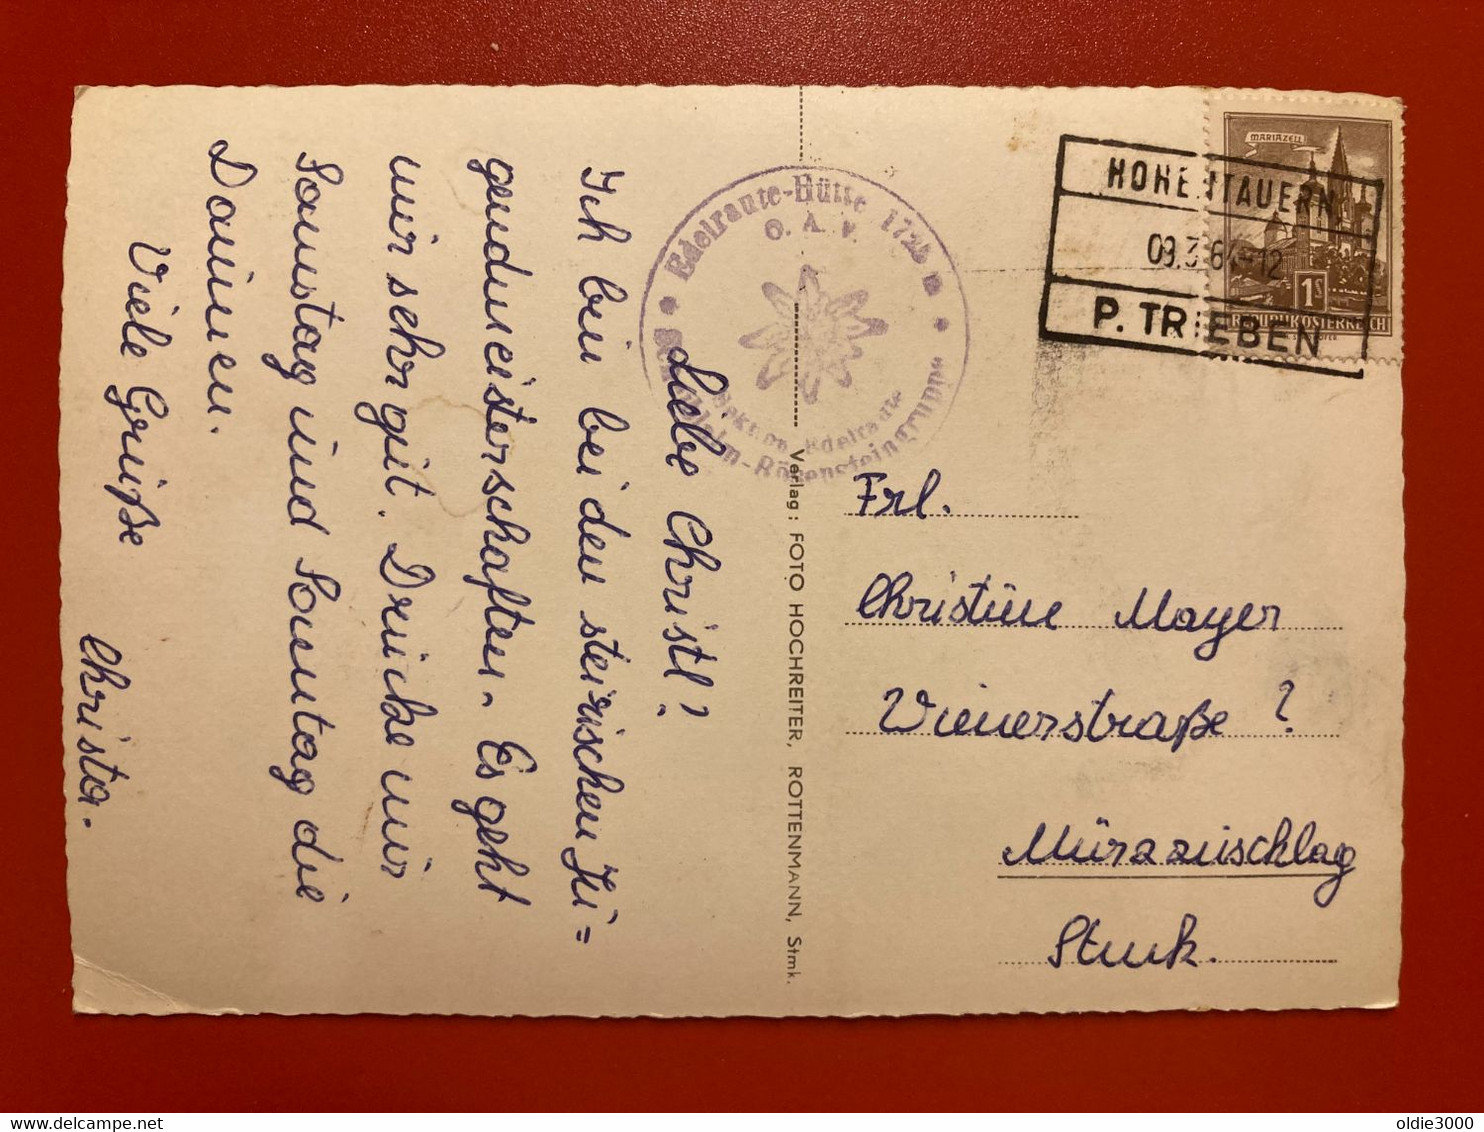 Liebe Christl!
Ich bin bei den steirischen Ju=
gendmeisterschaften. Es geht
mir sehr gut. Drücke mir
Samstag und Sonntag die
Daumen.
Viele Grüße
Christa.
Edelraute-Hütte 1725 m
Ö. A. V.
Sektion Edelraute
Rottenmann-Bösensteingruppe
Verlag: FOTO HOCHREITER, ROTTENMANN, Stmk.
MARIAZELL
1S
REPUBLIK ÖSTERREICH
HOHENTAUERN
09.3.64-12
P. TRIEBEN
Frl.
Christine Mayer
Wienerstraße ?
Mürzzuschlag
Stmk.
oldie3000